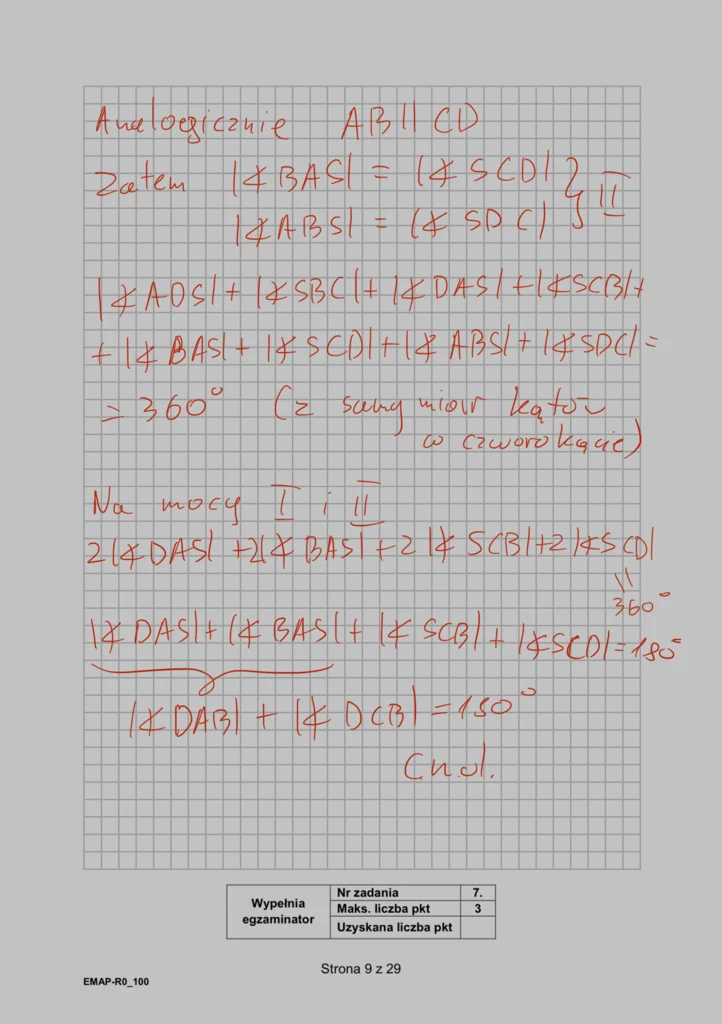 Analogicznie AB || CD
Zatem |∢BAS| = |∢SCD|
|∢ABS| = |∢SDC| } II
|∢ADS| + |∢SBC| + |∢DAS| + |∢SCB| +
+ |∢BAS| + |∢SCD| + |∢ABS| + |∢SDC| =
= 360° (z sumy miar kątów
w czworokącie)
Na mocy I i II
2|∢DAS| + 2|∢BAS| + 2|∢SCB| + 2|∢SCD|
||
360°
|∢DAS| + |∢BAS| + |∢SCB| + |∢SCD| = 180°
|∢DAB| + |∢DCB| = 180°
C.n.d.
Wypełnia egzaminator
Nr zadania 7.
Maks. liczba pkt 3
Uzyskana liczba pkt
Strona 9 z 29
EMAP-R0_100